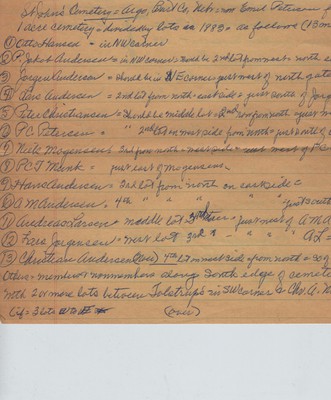 St John's Cemetery = Argo, Burt Co, Nebr = from Emil Petersen
1 acre cemetery = dividing lots in 1883 = as follows (13 mem
① Otto Hansen = in NW corner
② P. Jakob Andersen = in NW corner = should be 2nd lot from west = north
③ Jorgen Andersen = should be in NE corner just west of north gate
④ Lars Andersen = 2nd lot from north = east side = just south of Jorgen
⑤ Peter Christiansen = should be middle lot = 2nd from north just
⑥ P.C. Petersen = " 2nd lot on west side from north = just south of
⑦ Niels Mogensen = 3rd from north = west side = just west of
⑧ P.C.T. Munk = just east of Mogensen
⑨ Hans Andersen = 3rd lot from north on east side =
⑩ A M Andersen = 4th " " " " " just south
⑪ Andreas Larsen = middle lot 3rd tier = just west of A M A
⑫ Fred Jorgensen = west lot 3rd " = " " " A L =
⑬ Christian Andersen (over) 4th lot on west side from north =
Other = members & nonmembers along south edge of cemete
with 2 or more lots between Tolstrup's in SW corner & Chr. A.
(over)